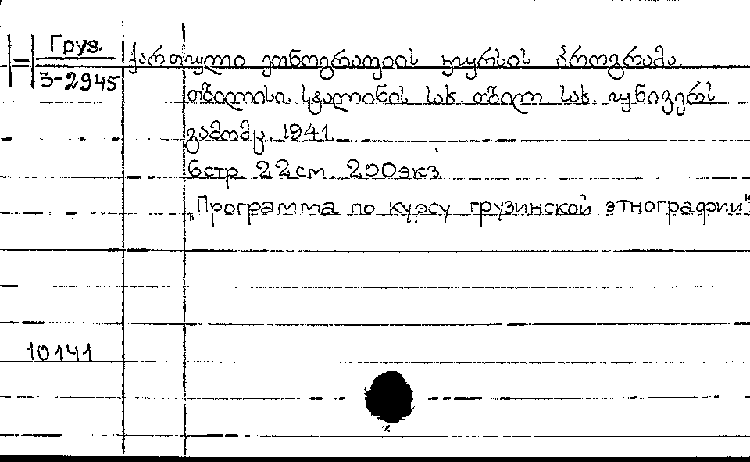 Груз.
3-2945
ქართული ეთნოგრაფიის კურსის პროგრამა
თბილისი. სტალინის სახ. თბილ. სახ. უნივერს
გამომც. 1941
6 стр. 22 см. 200 экз
„Программа по курсу грузинской этнографии"
10141